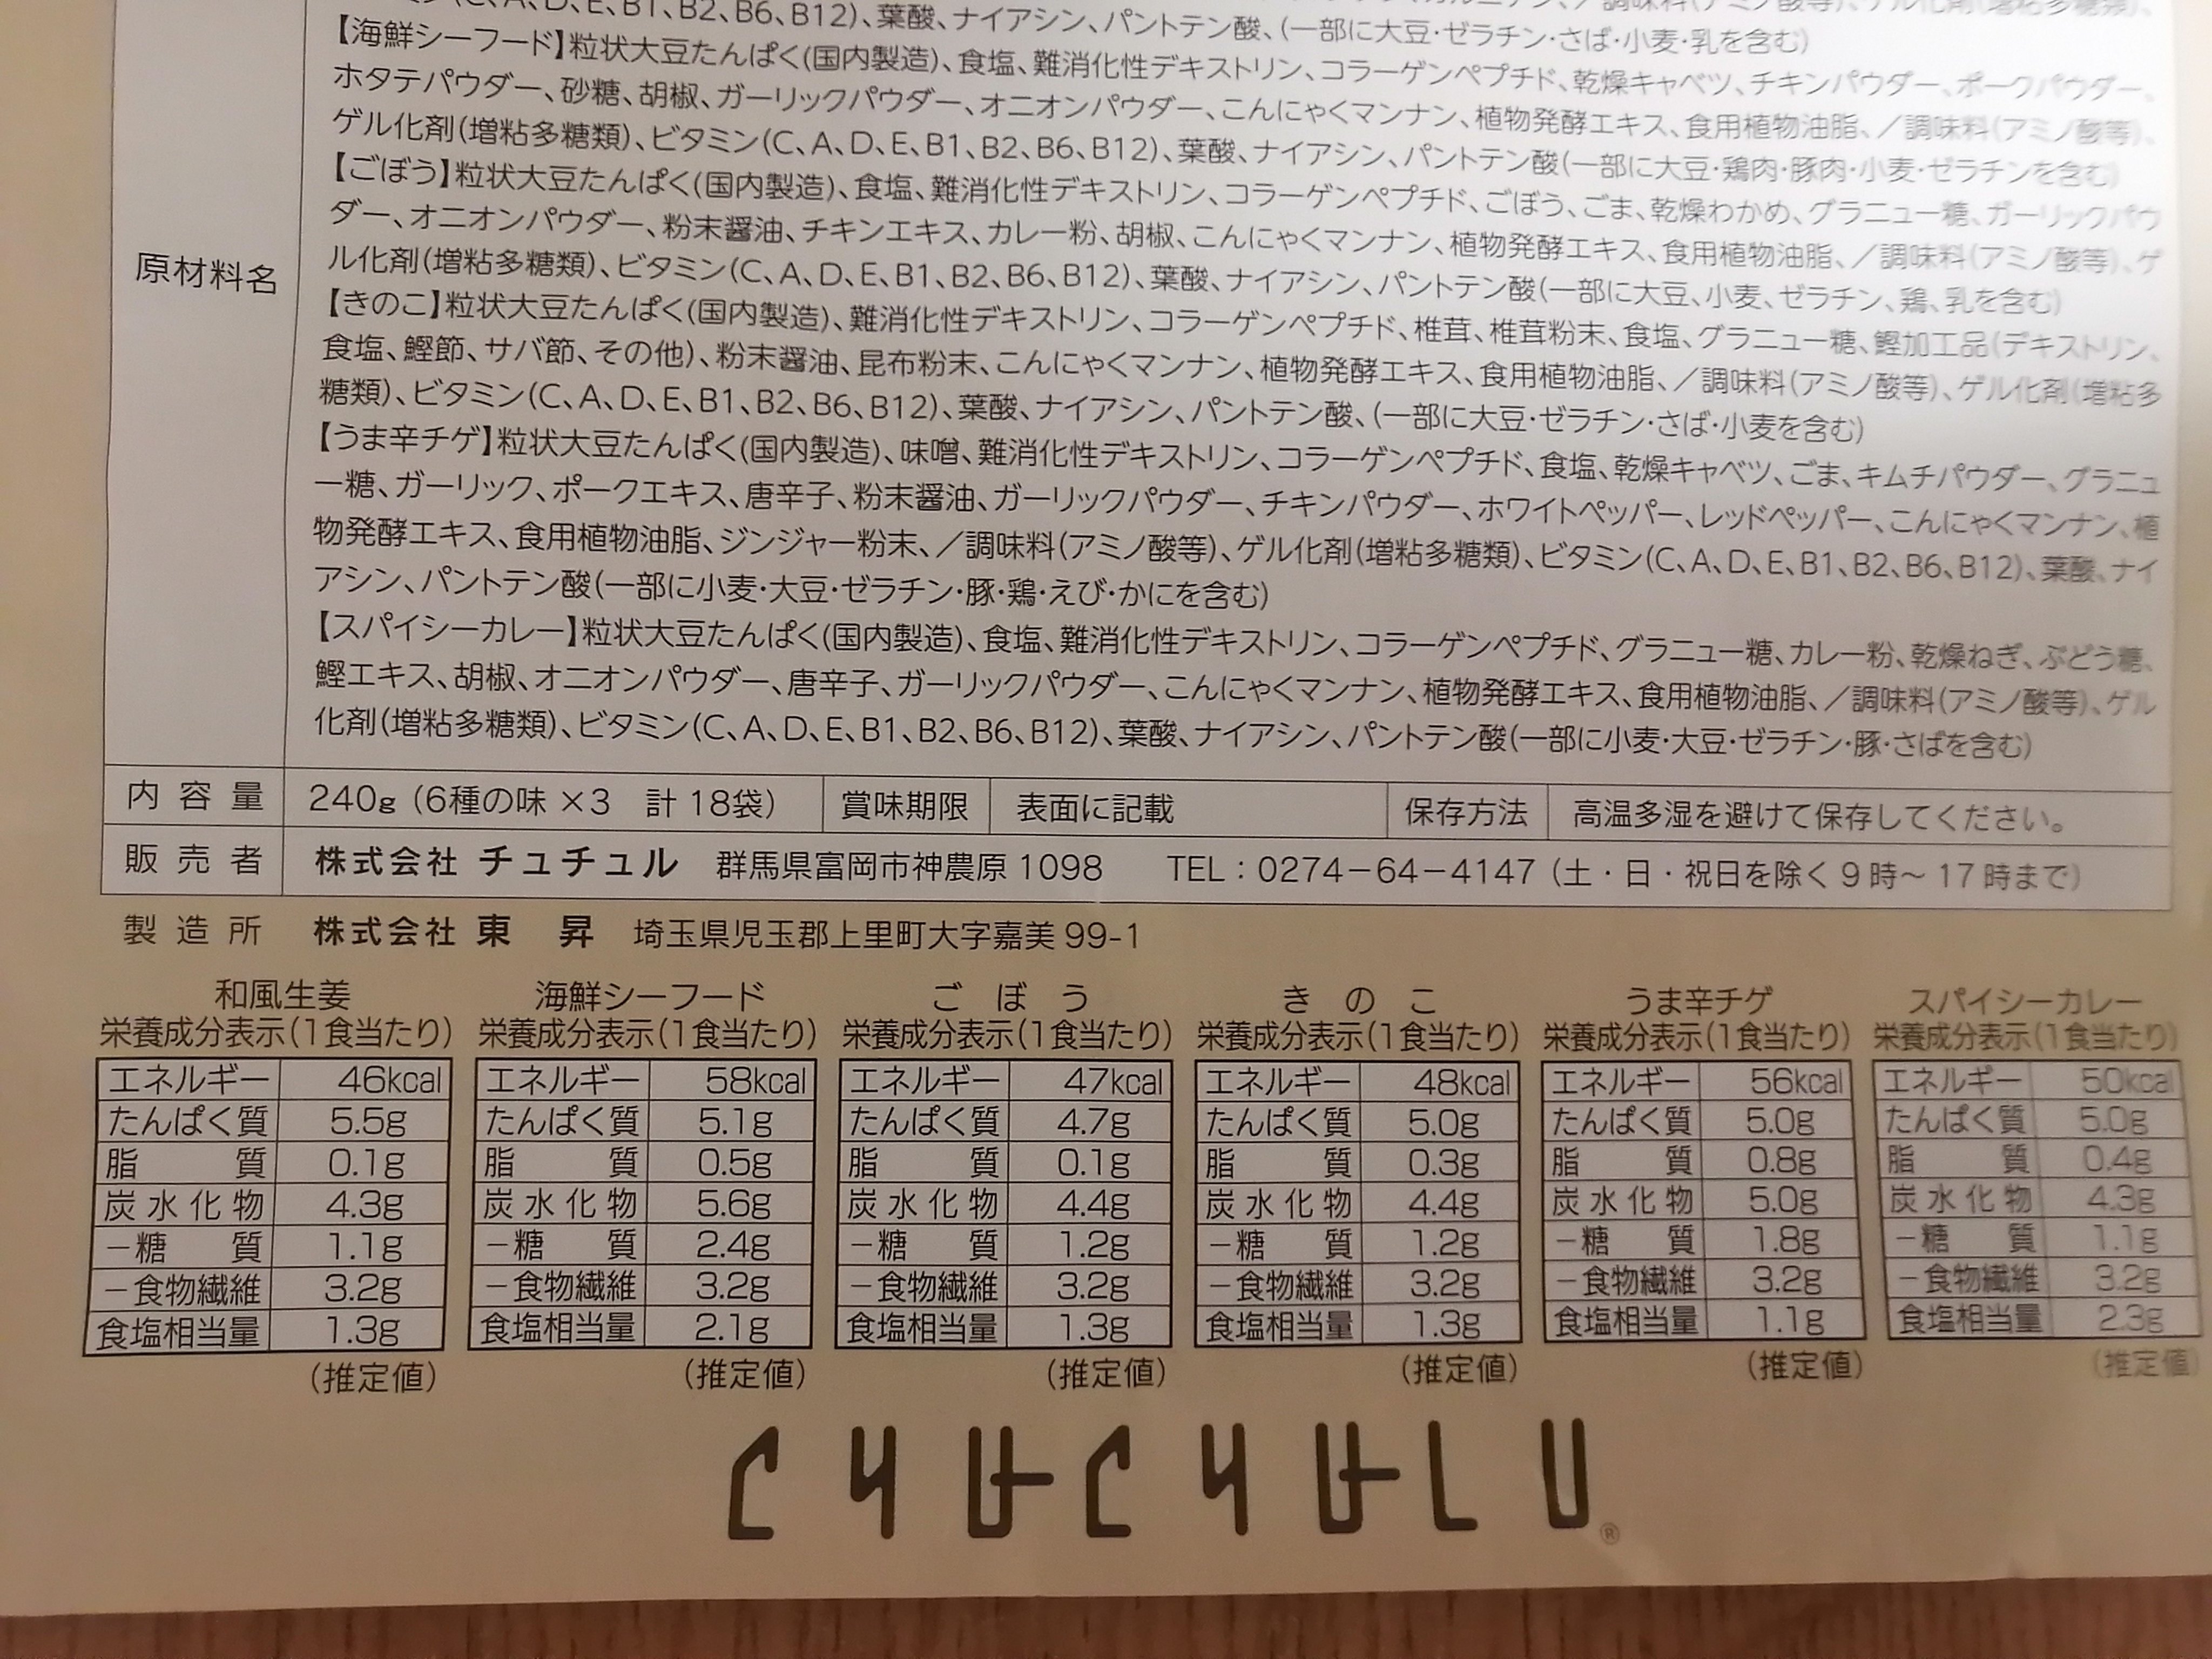 ミン(C、A、D、E、B1、B2、B6、B12)、葉酸、ナイアシン、パントテン酸、(一部に大豆・ゼラチン・さば・小麦・乳を含む)
【海鮮シーフード】粒状大豆たんぱく(国内製造)、食塩、難消化性デキストリン、コラーゲンペプチド、乾燥キャベツ、チキンパウダー、ポークパウダー、
ホタテパウダー、砂糖、胡椒、ガーリックパウダー、オニオンパウダー、こんにゃくマンナン、植物発酵エキス、食用植物油脂、／調味料(アミノ酸等)、
ゲル化剤(増粘多糖類)、ビタミン(C、A、D、E、B1、B2、B6、B12)、葉酸、ナイアシン、パントテン酸(一部に大豆・鶏肉・豚肉・小麦・ゼラチンを含む)
【ごぼう】粒状大豆たんぱく(国内製造)、食塩、難消化性デキストリン、コラーゲンペプチド、ごぼう、ごま、乾燥わかめ、グラニュー糖、ガーリックパウ
ダー、オニオンパウダー、粉末醤油、チキンエキス、カレー粉、胡椒、こんにゃくマンナン、植物発酵エキス、食用植物油脂、／調味料(アミノ酸等)、ゲ
原材料名
ル化剤(増粘多糖類)、ビタミン(C、A、D、E、B1、B2、B6、B12)、葉酸、ナイアシン、パントテン酸(一部に大豆、小麦、ゼラチン、鶏、乳を含む)
【きのこ】粒状大豆たんぱく(国内製造)、難消化性デキストリン、コラーゲンペプチド、椎茸、椎茸粉末、食塩、グラニュー糖、鰹加工品(デキストリン、
食塩、鰹節、サバ節、その他)、粉末醤油、昆布粉末、こんにゃくマンナン、植物発酵エキス、食用植物油脂、／調味料(アミノ酸等)、ゲル化剤(増粘多
糖類)、ビタミン(C、A、D、E、B1、B2、B6、B12)、葉酸、ナイアシン、パントテン酸、(一部に大豆・ゼラチン・さば・小麦を含む)
【うま辛チゲ】粒状大豆たんぱく(国内製造)、味噌、難消化性デキストリン、コラーゲンペプチド、食塩、乾燥キャベツ、ごま、キムチパウダー、グラニュ
ー糖、ガーリック、ポークエキス、唐辛子、粉末醤油、ガーリックパウダー、チキンパウダー、ホワイトペッパー、レッドペッパー、こんにゃくマンナン、植
物発酵エキス、食用植物油脂、ジンジャー粉末、／調味料(アミノ酸等)、ゲル化剤(増粘多糖類)、ビタミン(C、A、D、E、B1、B2、B6、B12)、葉酸、ナイ
アシン、パントテン酸(一部に小麦・大豆・ゼラチン・豚・鶏・えび・かにを含む)
【スパイシーカレー】粒状大豆たんぱく(国内製造)、食塩、難消化性デキストリン、コラーゲンペプチド、グラニュー糖、カレー粉、乾燥ねぎ、ぶどう糖、
鰹エキス、胡椒、オニオンパウダー、唐辛子、ガーリックパウダー、こんにゃくマンナン、植物発酵エキス、食用植物油脂、／調味料(アミノ酸等)、ゲル
化剤(増粘多糖類)、ビタミン(C、A、D、E、B1、B2、B6、B12)、葉酸、ナイアシン、パントテン酸(一部に小麦・大豆・ゼラチン・豚・さばを含む)
内容量 240g (6種の味×3 計18袋) 賞味期限 表面に記載 保存方法 高温多湿を避けて保存してください。
販売者 株式会社 チュチュル 群馬県富岡市神農原1098 TEL：0274−64−4147 (土・日・祝日を除く9時〜17時まで)
製造所 株式会社 東 昇 埼玉県児玉郡上里町大字嘉美99-1
和風生姜 海鮮シーフード ごぼう きのこ うま辛チゲ スパイシーカレー
栄養成分表示(1食当たり) 栄養成分表示(1食当たり) 栄養成分表示(1食当たり) 栄養成分表示(1食当たり) 栄養成分表示(1食当たり) 栄養成分表示(1食当たり)
エネルギー 46kcal エネルギー 58kcal エネルギー 47kcal エネルギー 48kcal エネルギー 56kcal エネルギー 50kcal
たんぱく質 5.5g たんぱく質 5.1g たんぱく質 4.7g たんぱく質 5.0g たんぱく質 5.0g たんぱく質 5.0g
脂質 0.1g 脂質 0.5g 脂質 0.1g 脂質 0.3g 脂質 0.8g 脂質 0.4g
炭水化物 4.3g 炭水化物 5.6g 炭水化物 4.4g 炭水化物 4.4g 炭水化物 5.0g 炭水化物 4.3g
−糖質 1.1g −糖質 2.4g −糖質 1.2g −糖質 1.2g −糖質 1.8g −糖質 1.1g
−食物繊維 3.2g −食物繊維 3.2g −食物繊維 3.2g −食物繊維 3.2g −食物繊維 3.2g −食物繊維 3.2g
食塩相当量 1.3g 食塩相当量 2.1g 食塩相当量 1.3g 食塩相当量 1.3g 食塩相当量 1.1g 食塩相当量 2.3g
(推定値) (推定値) (推定値) (推定値) (推定値) (推定値)
CYUCYULU®